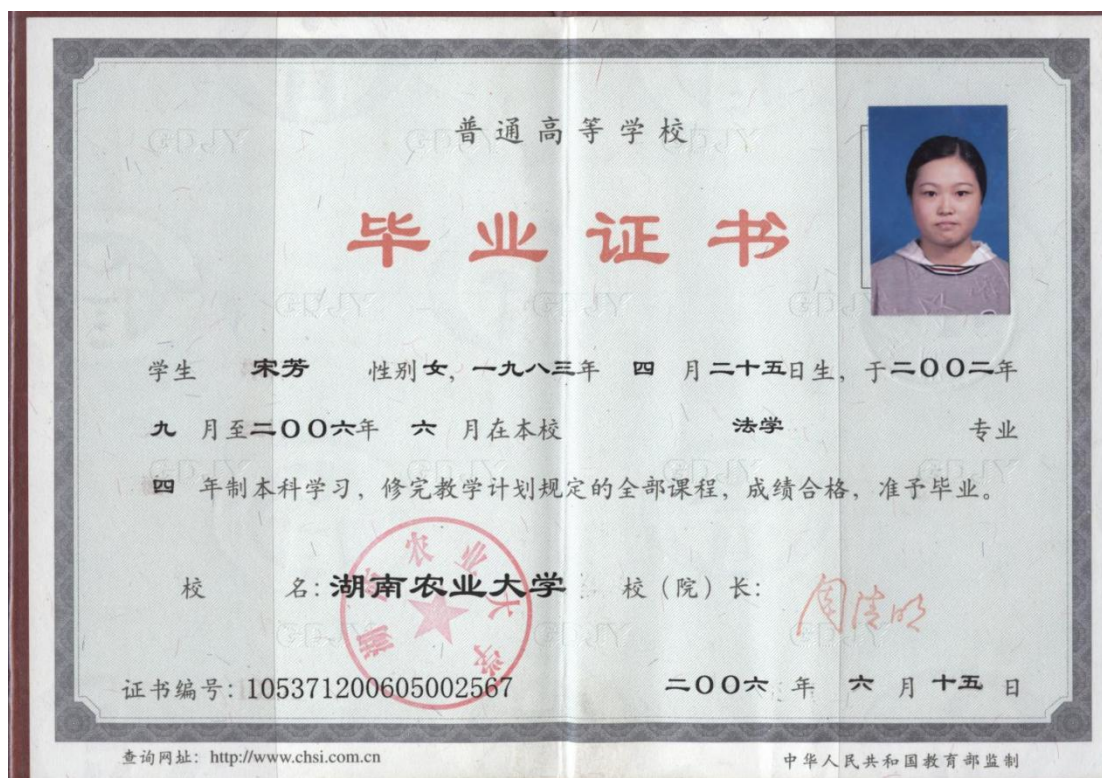 普通高等学校
毕业证书
学生 宋芳 性别 女, 一九八三年 四 月二十五日生, 于二〇〇二年
九 月至二〇〇六年 六 月在本校 法学 专业
四 年制本科学习, 修完教学计划规定的全部课程, 成绩合格, 准予毕业。
校 名: 湖南农业大学 校（院）长: 周清明
湖南农业大学
证书编号: 105371200605002567 二〇〇六 年 六 月 十五 日
查询网址: http://www.chsi.com.cn 中华人民共和国教育部监制